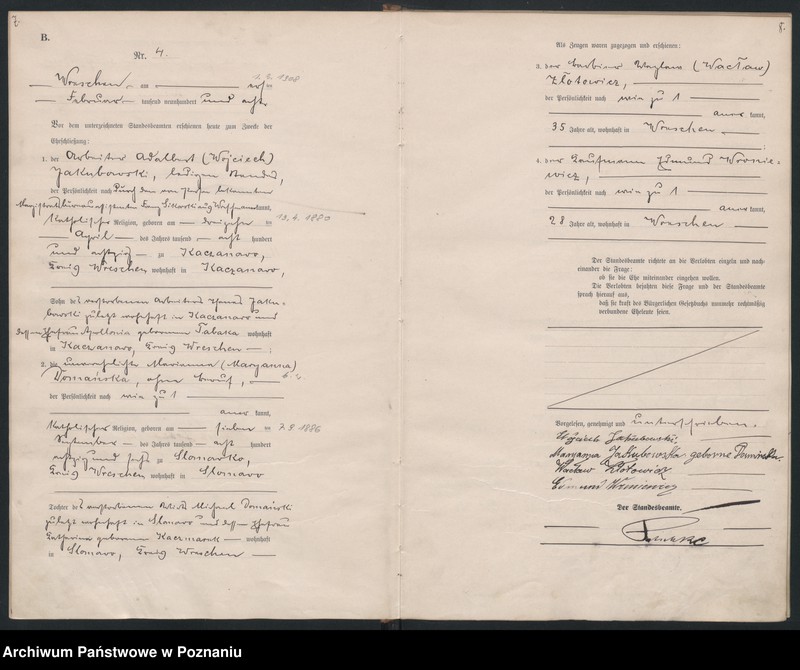 7.
B.
Nr. 4.
8. 2. 1908
Wreschen, am acht ten
Februar tausend neunhundert und acht
Vor dem unterzeichneten Standesbeamten erschienen heute zum Zwecke der
Eheschließung:
1. der Arbeiter Adalbert (Wojciech)
Jakubowski, ledigen Standes,
der Persönlichkeit nach durch den von Person bekannten
kannt,
katholischer Religion, geboren am dreizehn ten 13.4.1880
April des Jahres tausend acht hundert
und achtzig zu Kaczanowo,
Kreis Wreschen wohnhaft in Kaczanowo,
Sohn des verstorbenen Arbeiters Jaku-
bowski zuletzt wohnhaft in Kaczanowo und
dessen Ehefrau Apollonia geborenen Tabaka wohnhaft
in Kaczanowo, Kreis Wreschen ;
2. die unverehelichte Marianna (Maryanna)
Domańska, ohne Beruf,
der Persönlichkeit nach wie zu 1
aner kannt,
katholischer Religion, geboren am sieben ten 7.9.1886
September des Jahres tausend acht hundert
achtzig und sechs zu Slomowko,
Kreis Wreschen wohnhaft in Slomowo
Tochter des verstorbenen Michael Domański
zuletzt wohnhaft in Slomowo und dessen Ehefrau
Katharina geborenen Kaczmarek wohnhaft
in Slomowo, Kreis Wreschen
8.
Als Zeugen waren zugezogen und erschienen:
3. der Barbier Wazlaw (Wacław)
Złotowicz,
der Persönlichkeit nach wie zu 1
aner kannt,
35 Jahre alt, wohnhaft in Wreschen ;
4. der Kaufmann Edmund Wronie-
wicz,
der Persönlichkeit nach wie zu 1
aner kannt,
28 Jahre alt, wohnhaft in Wreschen
Der Standesbeamte richtete an die Verlobten einzeln und nach-
einander die Frage:
ob sie die Ehe miteinander eingehen wollen.
Die Verlobten bejahten diese Frage und der Standesbeamte
sprach hierauf aus,
daß sie kraft des Bürgerlichen Gesetzbuchs nunmehr rechtmäßig
verbundene Eheleute seien.
Vorgelesen, genehmigt und unterschrieben.
Wojciech Jakubowski.
Maryanna Jakubowska geborne Domańska.
Wacław Złotowicz
Edmund
Der Standesbeamte.
Archiwum Państwowe w Poznaniu